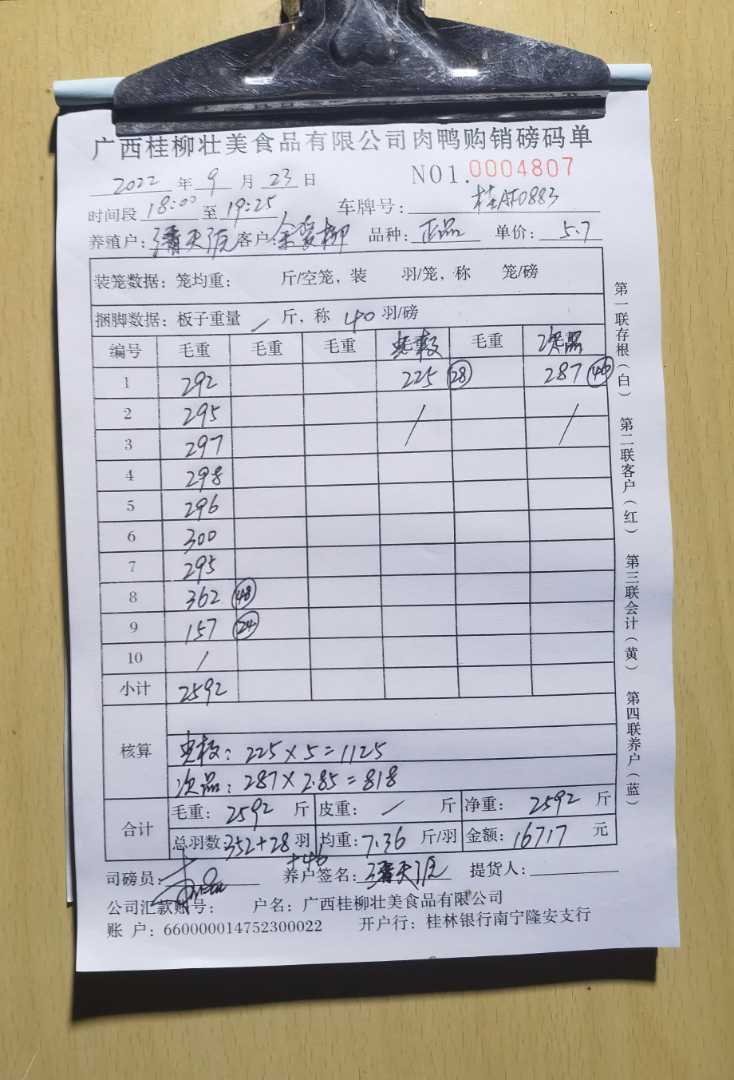 广西桂柳壮美食品有限公司肉鸭购销磅码单
2022 年 9 月 23 日 NO1.0004807
时间段 18:00 至 19:25 车牌号: 桂AF0883
养殖户: 客户: 品种: 正品 单价: 5.7
装笼数据: 笼均重: 斤/空笼, 装 羽/笼, 称 笼/磅
捆脚数据: 板子重量 / 斤, 称 40 羽/磅
编号 毛重 毛重 毛重 毛重 次品
1 292 225 28 287 46
2 295 / /
3 297
4 298
5 296
6 300
7 295
8 362 48
9 157 24
10 /
小计 2592
核算
225×5=1125
次品: 287×2.85=818
合计 毛重: 2592 斤 皮重: / 斤 净重: 2592 斤
总羽数 352+28 羽 均重: 7.36 斤/羽 金额: 16717 元
+46
司磅员: 养户签名: 提货人:
公司汇款账号: 户名: 广西桂柳壮美食品有限公司
账 户: 660000014752300022 开户行: 桂林银行南宁隆安支行
第一联存根(白) 第二联客户(红) 第三联会计(黄) 第四联养户(蓝)